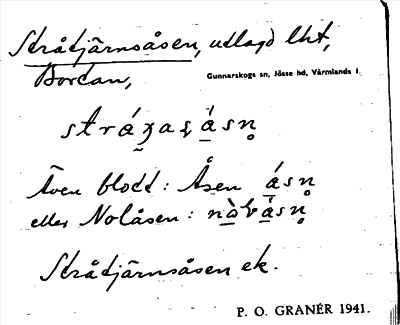 Stråtjärnsåsen, utlagd lht,
Bortan,
Gunnarskogs sn, Jösse hd, Värmlands l.
Även blott: Åsen
eller Nolåsen:
Stråtjärnsåsen ek.
P. O. GRANÉR 1941.